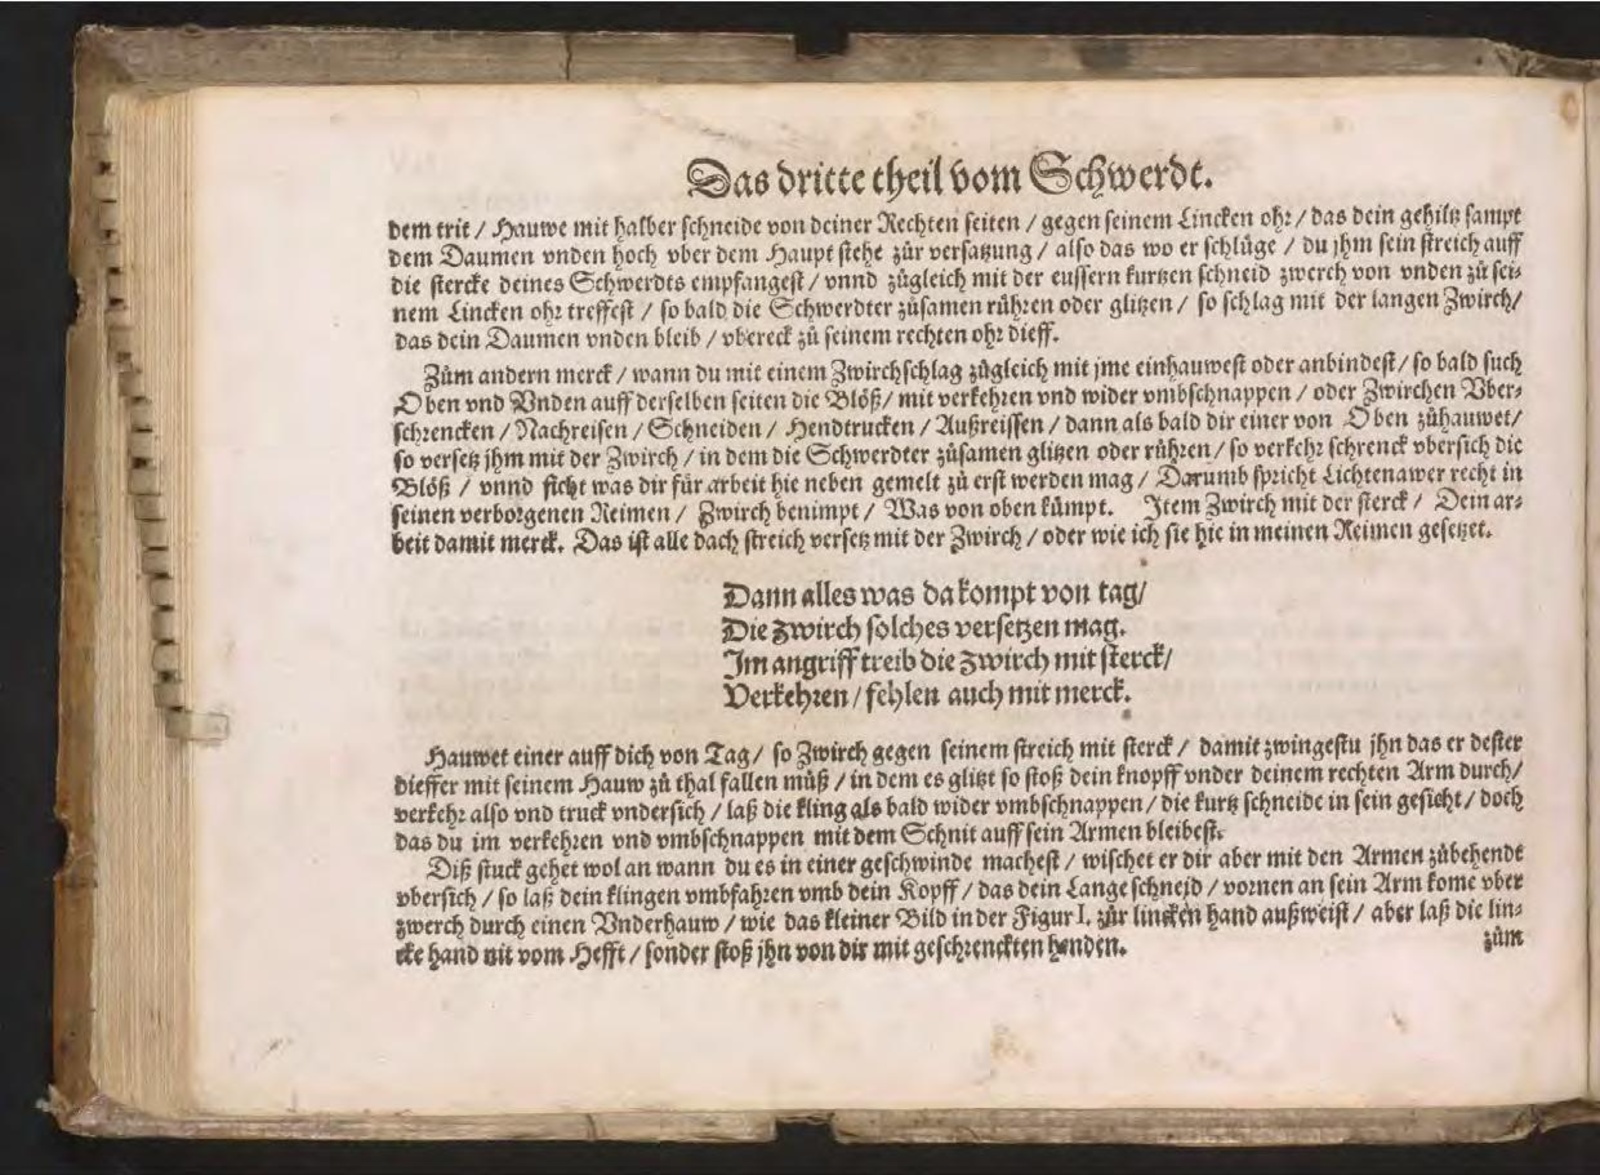 Das dritte theil vom Schwerdt.
dem trit / Hauwe mit halber schneide von deiner Rechten seiten / gegen seinem Lincken ohr / das dein gehiltz sampt
dem Daumen vnden hoch vber dem Haupt stehe zůr versatzung / also das wo er schlůge / du jhm sein streich auff
die stercke deines Schwerdts empfangest / vnnd zůgleich mit der eussern kurtzen schneid zwerch von vnden zů sei⸗
nem Lincken ohr treffest / so bald die Schwerdter zůsamen růhren oder glitzen / so schlag mit der langen Zwirch /
das dein Daumen vnden bleib / vbereck zů seinem rechten ohr dieff.
Zům andern merck / wann du mit einem Zwirchschlag zůgleich mit jme einhauwest oder anbindest / so bald such
Oben vnd Vnden auff derselben seiten die Blöß / mit verkehren vnd wider vmbschnappen / oder Zwirchen Vber⸗
schrencken / Nachreisen / Schneiden / Hendtrucken / Außreissen / dann als bald dir einer von Oben zůhauwet /
so versetz jhm mit der Zwirch / in dem die Schwerdter zůsamen glitzen oder růhren / so verkehr schrenck vbersich die
Blöß / vnnd sicht was dir fůr arbeit hie neben gemelt zů erst werden mag / Darumb spricht Lichtenawer recht in
seinen verborgenen Reimen / Zwirch benimpt / Was von oben kůmpt. Item Zwirch mit der sterck / Dein ar⸗
beit damit merck. Das ist alle dach streich versetz mit der Zwirch / oder wie ich sie hie in meinen Reimen gesetzet.
Dann alles was da kompt von tag /
Die zwirch solches versetzen mag.
Im angriff treib die zwirch mit sterck /
Verkehren / fehlen auch mit merck.
Hauwet einer auff dich von Tag / so Zwirch gegen seinem streich mit sterck / damit zwingestu jhn das er dester
dieffer mit seinem Hauw zů thal fallen můß / in dem es glitzt so stoß dein knopff vnder deinem rechten Arm durch /
verkehr also vnd truck vndersich / laß die kling als bald wider vmbschnappen / die kurtz schneide in sein gesicht / doch
das du im verkehren vnd vmbschnappen mit dem Schnit auff sein Armen bleibest.
Diß stuck gehet wol an wann du es in einer geschwinde machest / wischet er dir aber mit den Armen zůbehende
vbersich / so laß dein klingen vmbfahren vmb dein Kopff / das dein Lange schneid / vornen an sein Arm kome vber
zwerch durch einen Vnderhauw / wie das kleiner Bild in der Figur I. zůr lincken hand außweist / aber laß die lin⸗
cke hand nit vom Hefft / sonder stoß jhn von dir mit geschrenckten henden.
zům